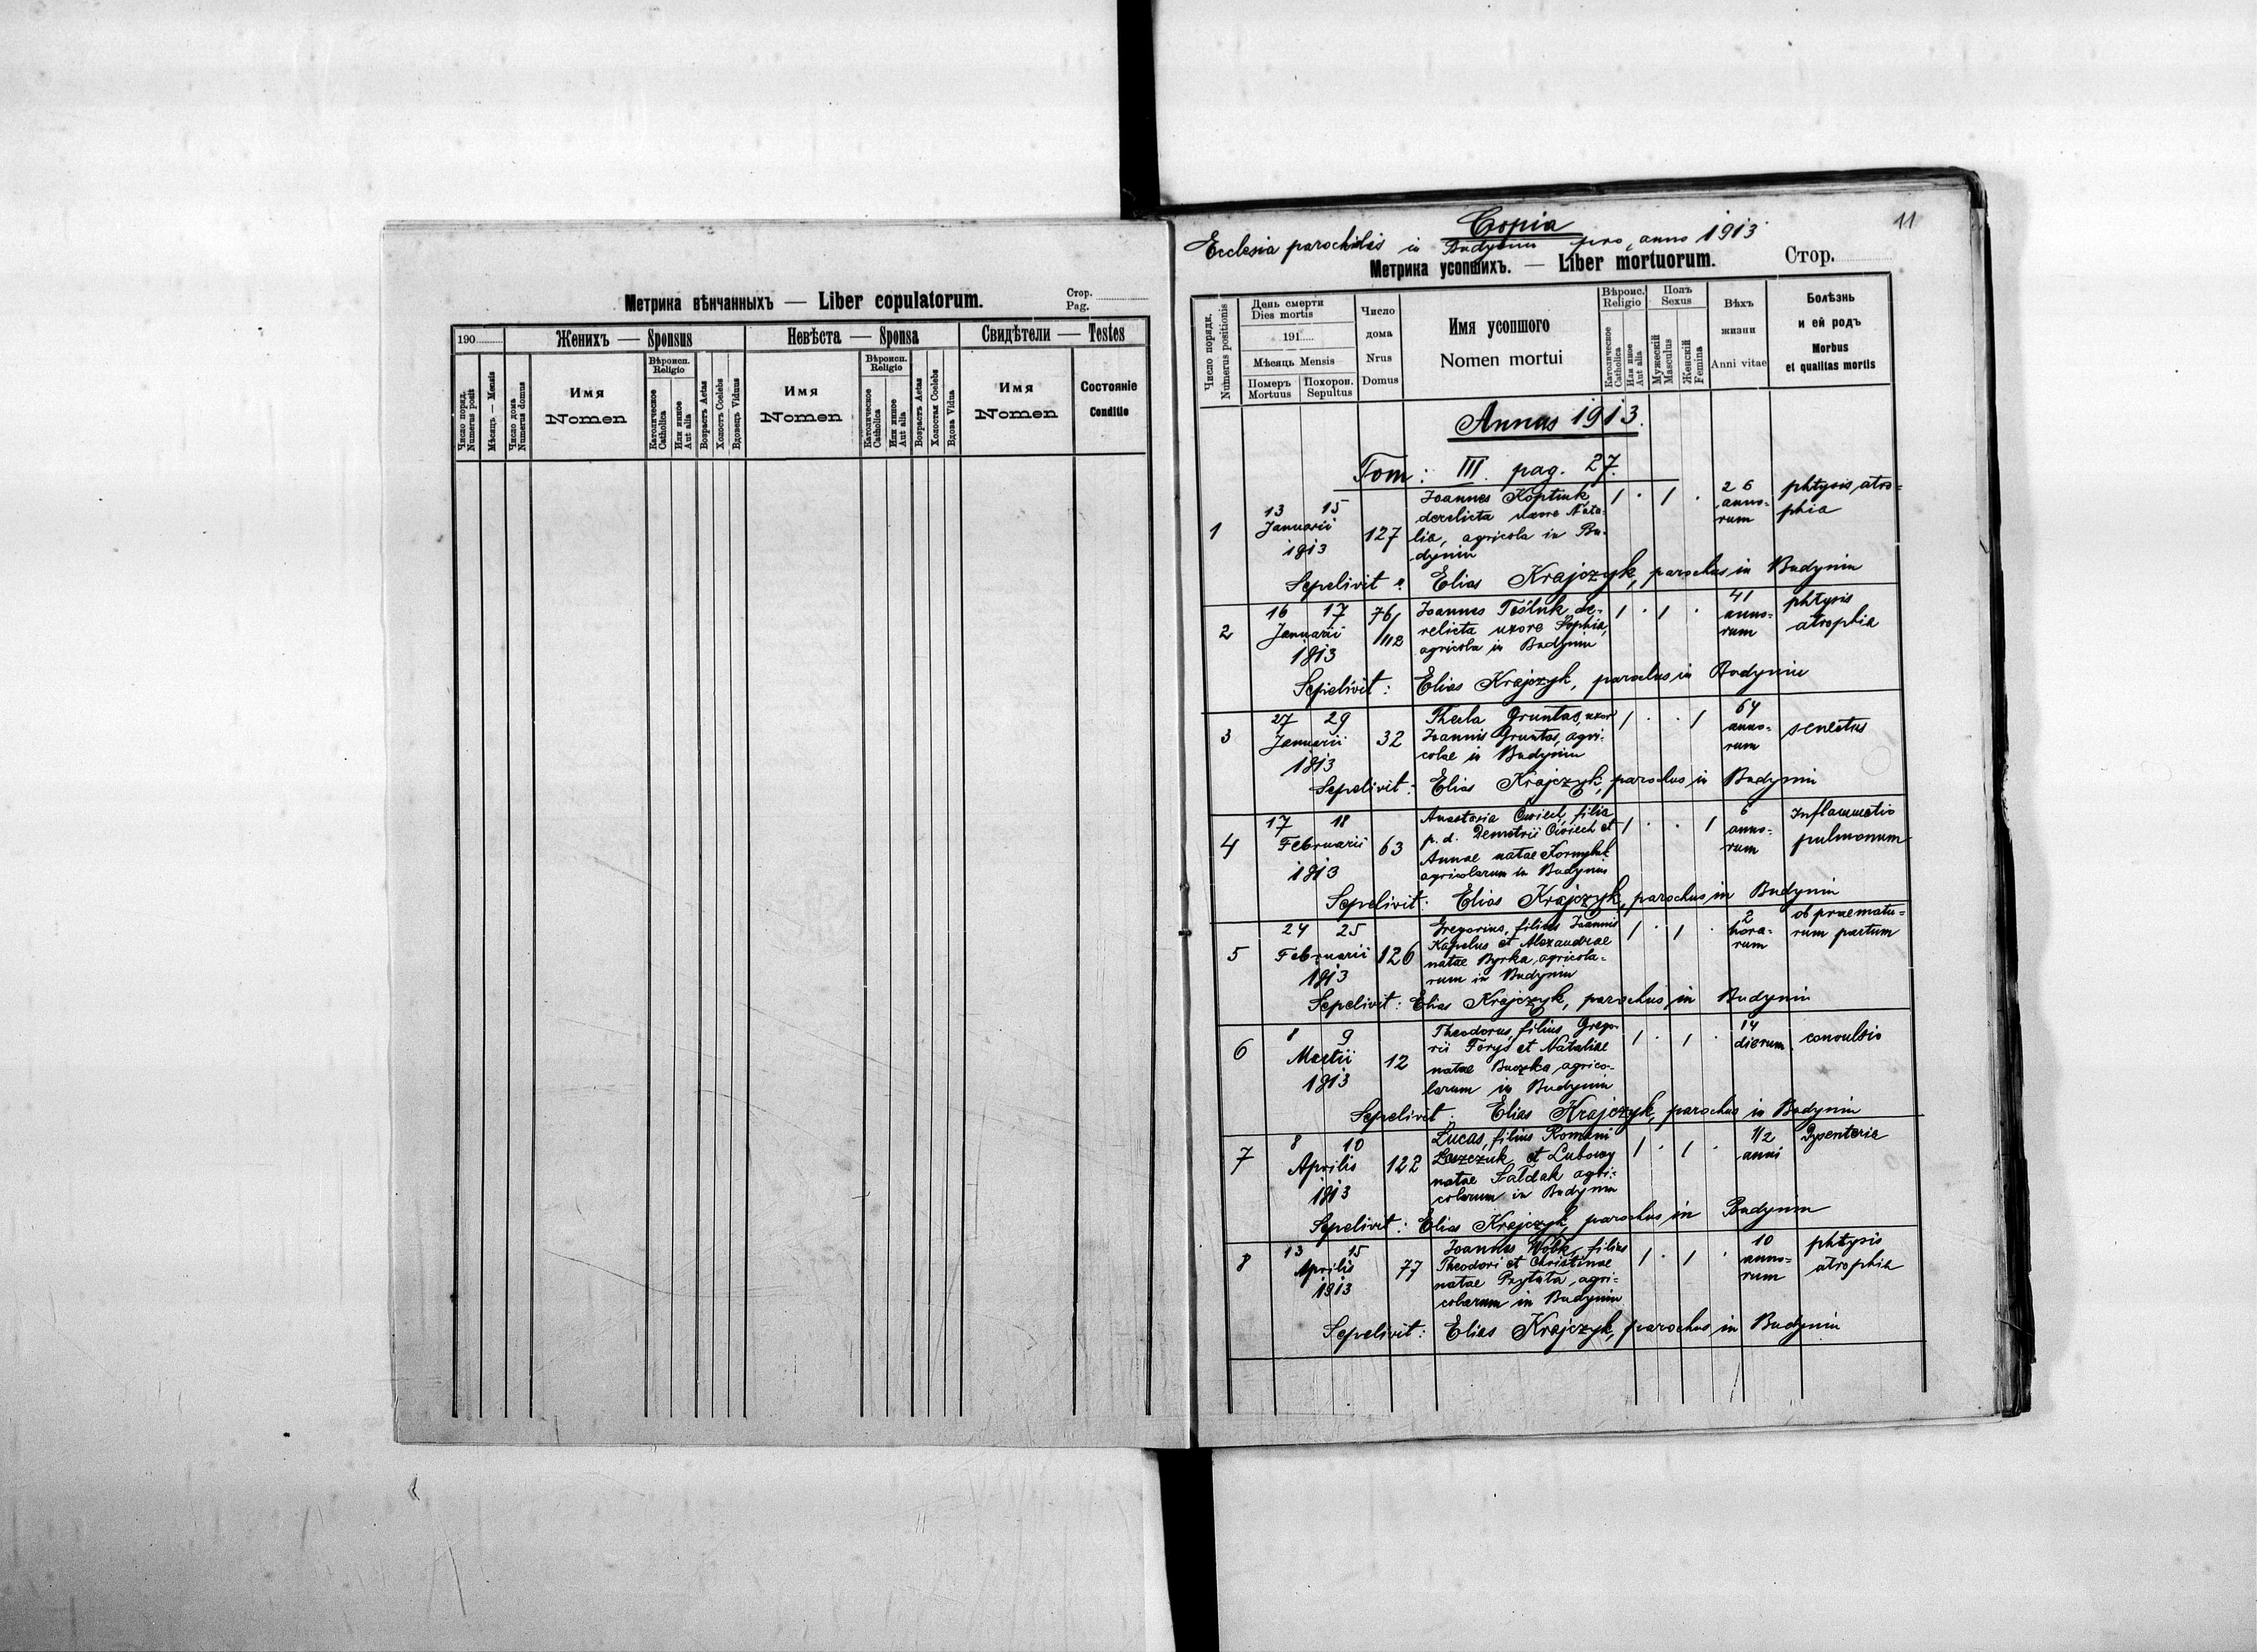 Метрика вѣнчанныхъ — Liber copulatorum.
Стор.
Pag.
190
Женихъ — Sponsus
Невѣста — Sponsa
Свидѣтели — Testes
Число поряд.
Numerus posit
Мѣсяцъ — Mensis
Число дома
Numerus domus
Имя
Nomen
Вѣроисп.
Religio
Католическое
Catholica
Или инное
Aut alia
Возрастъ Aetas
Холостъ Coelebs
Вдовецъ Viduus
Имя
Nomen
Вѣроисп.
Religio
Католическое
Catholica
Или инное
Aut alia
Возрастъ Aetas
Холостая Coelebs
Вдова Vidua
Имя
Nomen
Состояніе
Conditio
11
Copia
Ecclesia parochilis in Budynin pro anno 1913
Метрика усопшихъ. — Liber mortuorum.
Стор.
Число порядк.
Numerus positionis
День смерти
Dies mortis
191
Мѣсяцъ Mensis
Померъ
Mortuus
Похорон.
Sepultus
Число
дома
Nrus
Domus
Имя усопшого
Nomen mortui
Вѣроис.
Religio
Католическое
Catholica
Или иное
Aut alia
Полъ
Sexus
Мужескій
Masculus
Женскій
Femina
Вѣхъ
жизни
Anni vitae
Болѣзнь
и ей родъ
Morbus
et qualitas mortis
Annus 1913.
Tom: III. pag. 27.
1
13 15
Januarii
1913
127
Joannes Koptiuk
derelicta uxore Nata-
lia, agricola in Bu-
dynin
1 . 1 .
26
anno-
rum
phtysis atro-
phia
Sepelivit: Elias Krajczyk, parochus in Budynin
2
16 17
Januarii
1913
76/
112
Joannes Teśluk de-
relicta uxore Sophia,
agricola in Budynin
1 . 1 .
41
anno-
rum
phtysis
atrophia
Sepelivit: Elias Krajczyk, parochus in Budynin
3
27 29
Januarii
1913
32
Thecla Gruntas, uxor
Joannis Gruntas, agri-
colae in Budynin
1 . . 1
64
anno-
rum
senectus
Sepelivit: Elias Krajczyk, parochus in Budynin
4
17 18
Februarii
1913
63
Anastasia Ćwiech, filia
p. d. Demetrii Ćwiech et
Annae natae
agricolarum in Budynin
1 . . 1
6
anno-
rum
Inflammatio
pulmonum
Sepelivit: Elias Krajczyk, parochus in Budynin
5
24 25
Februarii
1913
126
Gregorius, filius Joannis
Kapelus et Alexandrae
natae Byrka, agricola-
rum in Budynin
1 . 1 .
2
hora-
rum
ob praematu-
rum partum
Sepelivit: Elias Krajczyk, parochus in Budynin
6
8 9
Martii
1913
12
Theodorus, filius Grego-
rii Forys et Nataliae
natae Buczka, agrico-
larum in Budynin
1 . 1 .
14
dierum
convulsio
Sepelivit: Elias Krajczyk, parochus in Budynin
7
8 10
Aprilis
1913
122
Lucas, filius Romani
Łaszczuk et Lubowy
natae Sałdak agri-
colarum in Budynin
1 . 1 .
1/2
anni
Dysenteria
Sepelivit: Elias Krajczyk, parochus in Budynin
8
13 15
Aprilis
1913
77
Joannes Wołk, filius
Theodori et Christinae
natae Prytuła, agri-
colarum in Budynin
1 . 1 .
10
anno-
rum
phtysis
atrophia
Sepelivit: Elias Krajczyk, parochus in Budynin